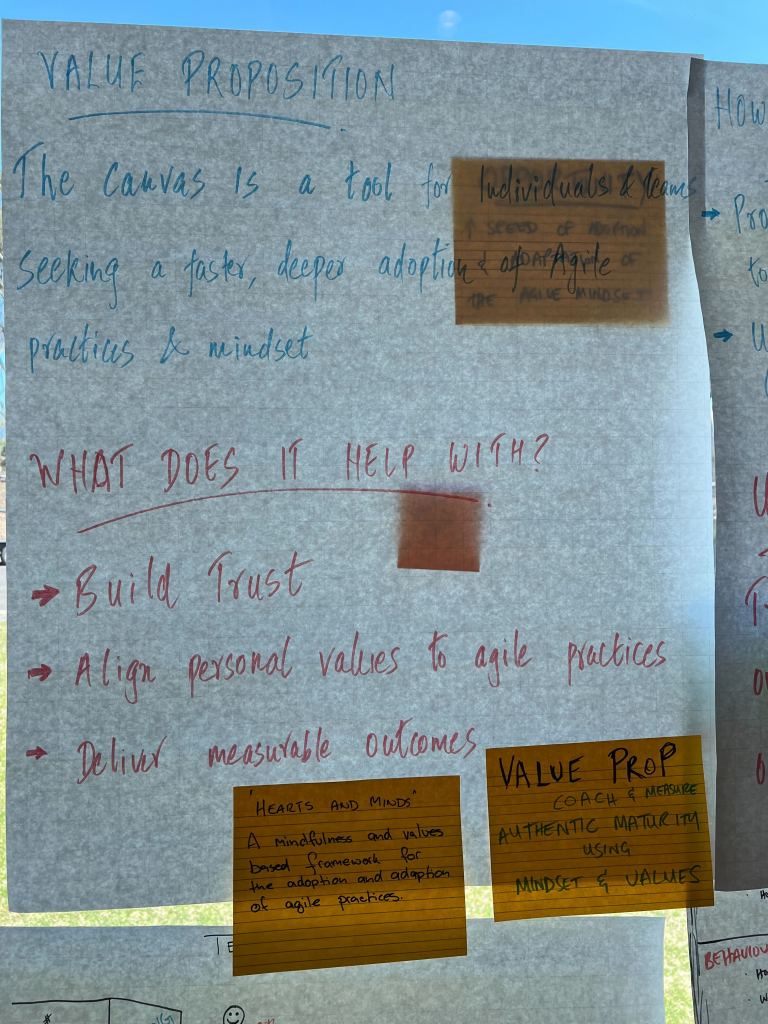 VALUE PROPOSITION
The Canvas is a tool for Individuals & Teams
Seeking a faster, deeper adoption of Agile
practices & mindset
SPEED OF ADOPTION
OF
THE 'AGILE MINDSET'
WHAT DOES IT HELP WITH?
→ Build Trust
→ Align personal values to agile practices
→ Deliver measurable outcomes
'HEARTS AND MINDS'
A mindfulness and values
based framework for
the adoption and adaption
of agile practices.
VALUE PROP
COACH & MEASURE
AUTHENTIC MATURITY
USING
MINDSET & VALUES
HOW
→ Pro
to
→ U
TE
BEHAVIOU